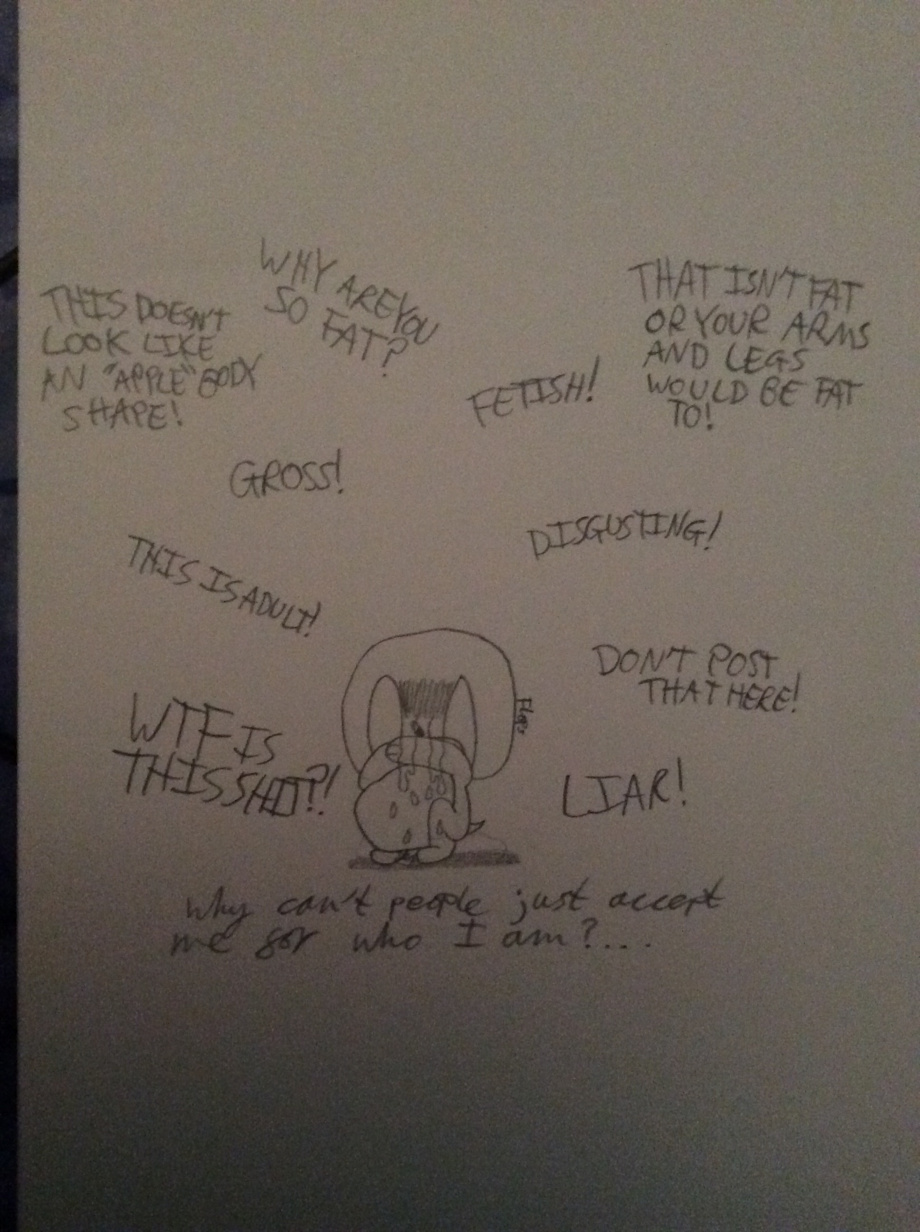 WHY ARE YOU
SO FAT?
THIS DOESN'T
LOOK LIKE
AN "APPLE" BODY
SHAPE!
THAT ISN'T FAT
OR YOUR ARMS
AND LEGS
WOULD BE FAT
TO!
FETISH!
GROSS!
DISGUSTING!
THIS IS ADULT!
DON'T POST
THAT HERE!
WTF IS
THIS SHIT?!
LIAR!
why can't people just accept
me for who I am?....